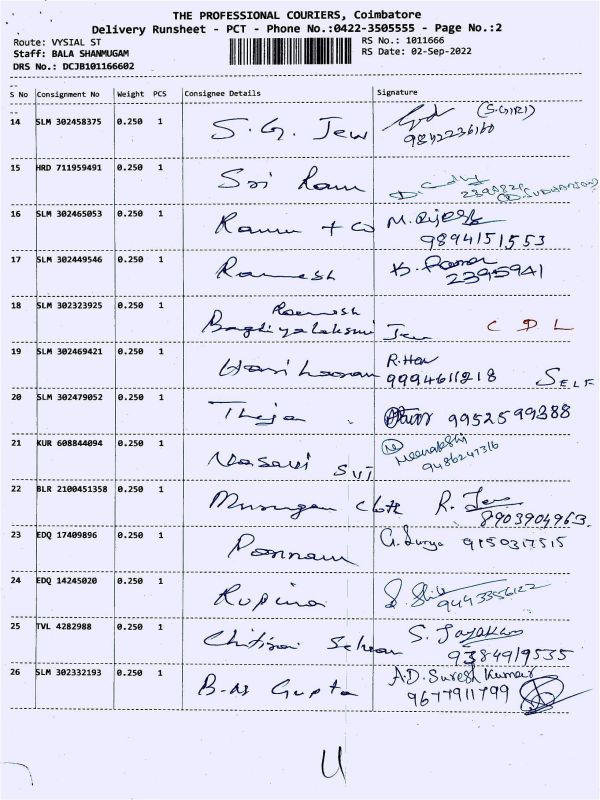 THE PROFESSIONAL COURIERS, Coimbatore
Delivery Runsheet - PCT - Phone No.:0422-3505555 - Page No.:2
Route: VYSIAL ST
RS No.: 1011666
Staff: BALA SHANMUGAM
RS Date: 02-Sep-2022
DRS No.: DCJB101166602
S No Consignment No Weight PCS Consignee Details Signature
14 SLM 302458375 0.250 1 S. G. Jew (S.GIRI)
9842236160
15 HRD 711959491 0.250 1 Sri Ram
16 SLM 302465053 0.250 1 Ramu + Co M.
9894151553
17 SLM 302449546 0.250 1 Ramesh
2395941
18 SLM 302323925 0.250 1 Ramesh
Baghiyalakshmi Jew C D L
19 SLM 302469421 0.250 1 Hariharan R.Hari
9994611218 SELF
20 SLM 302479052 0.250 1 Theja 9952599388
21 KUR 608844094 0.250 1 Vasavi Meenakshi
9486247316
22 BLR 2100451358 0.250 1 Murugan Cloth R.
8903904963
23 EDQ 17409896 0.250 1 Ponnam G. Surya 9150317515
24 EDQ 14245020 0.250 1 Rupina 9443356122
25 TVL 4282988 0.250 1 S.
9384919535
26 SLM 302332193 0.250 1 Gupta A.D. Suresh Kumar
9677911799